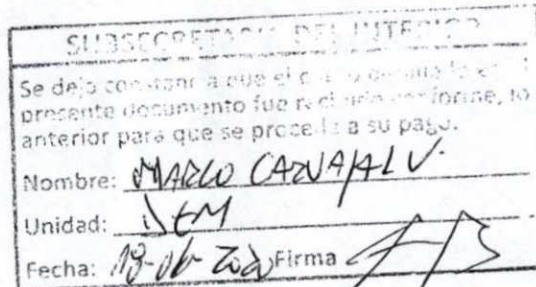 SUBSECRETARIA DEL INTERIOR
Se deja constancia que el
presente documento fue recibido conforme, lo
anterior para que se proceda a su pago.
Nombre: MARCO CARVAJAL V.
Unidad: DEM
Fecha: Firma